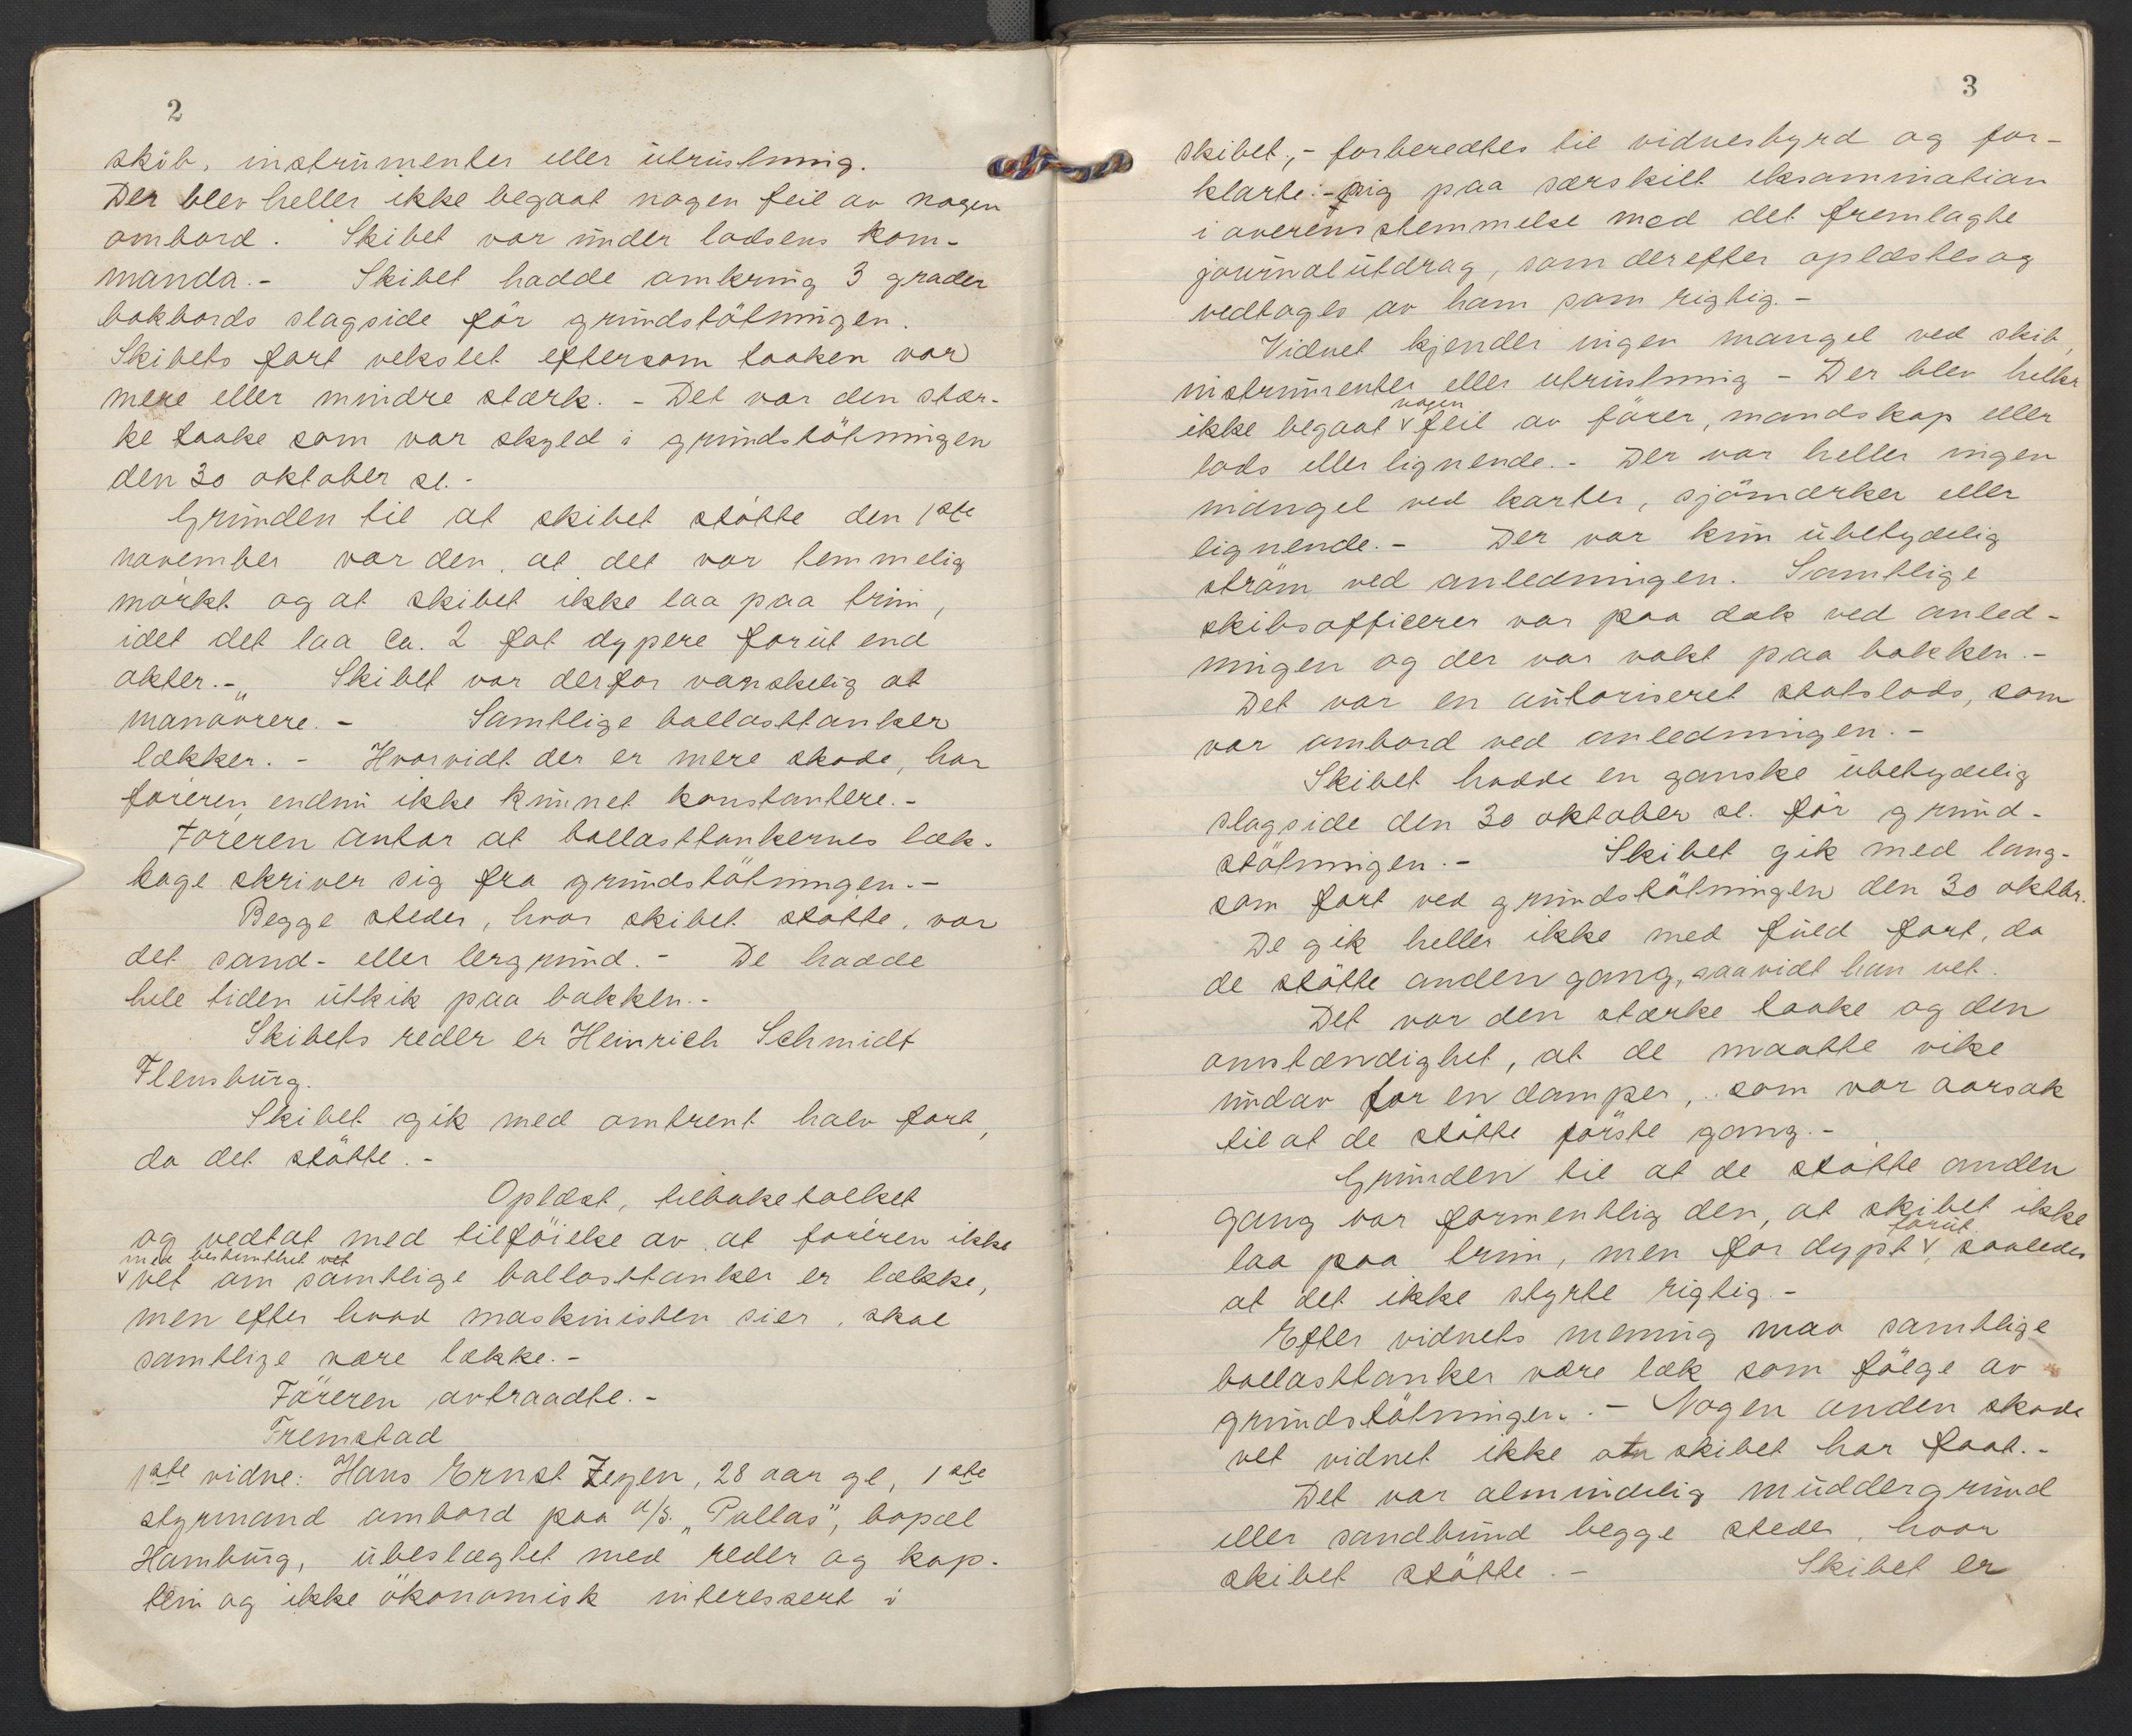 2
skib, instrumenter eller utrustning.
Der blev heller ikke begaat nogen feil av nogen
ombord. Skibet var under lodsens kom-
mando.- Skibet hadde omkring 3 grader
bakbords slagside för grundstötningen.
Skibets fart vekslet eftersom taaken var
mere eller mindre stærk. - Det var den stær-
ke taake som var skyld i grundstötningen
den 30 oktober sl.-
Grunden til at skibet stötte den 1ste
november var den, at det var temmelig
mörkt og at skibet ikke laa paa trim,
idet det laa ca. 2 fot dypere forut end
akter.- Skibet var derfor vanskelig at
manövrere. - Samtlige ballasttanker
lækker. - Hvorvidt der er mere skade, har
föreren endnu ikke kunnet konstantere.-
Föreren antar at ballasttankernes læk-
kage skriver sig fra grundstötningen.-
Begge steder, hvor skibet stötte, var
det sand- eller lergrund.- De hadde
hele tiden utkik paa bakken.-
Skibets reder er Heinrich Schmidt
Flensburg.
Skibet gik med omtrent halv fart,
da det stötte.-
Oplæst, tilbaketolket
og vedtat med tilföielse av at föreren ikke
med bestemthet vet
v vet om samtlige ballasttanker er lække,
men efter hvad maskinisten sier, skal
samtlige være lække.-
Föreren avtraadte.-
Fremstod
1ste vidne: Hans Ernst Zegen, 28 aar gl, 1ste
styrmand ombord paa d/s. „Pallas", bopæl
Hamburg, ubeslægtet med reder og kap-
tein og ikke ökonomisk interessert i
3
skibet,- forberedtes til vidnesbyrd og for-
klarte:- sig paa særskilt eksammination
i overensstemmelse med det fremlagte
journalutdrag, som derefter oplæstes og
vedtages av ham som rigtig.-
Vidnet kjender ingen mangel ved skib,
instrumenter eller utrustning - Der blev heller
nogen
ikke begaat v feil av förer, mandskap eller
lods eller lignende.- Der var heller ingen
mangel ved karter, sjömærker eller
lignende.- Der var kun ubetydelig
ström ved anledningen. Samtlige
skibsofficerer var paa dæk ved anled-
ningen og der var vakt paa bakken.-
Det var en autoriseret statslods, som
var ombord ved anledningen.-
Skibet hadde en ganske ubetydelig
slagside den 30 oktober sl. för grund-
stötningen.- Skibet gik med lang-
som fart ved grundstötningen den 30 oktbr.
De gik heller ikke med fuld fart, da
de stötte anden gang, saavidt han vet.
Det var den stærke taake og den
omstændighet, at de maatte vike
undav for en damper, som var aarsak
til at de stötte förste gang.-
Grunden til at de stötte anden
gang var formentlig den, at skibet ikke
forut
laa paa trim, men for dypt v, saaledes
at det ikke styrte rigtig.-
Efter vidnets mening maa samtlige
ballasttanker være læk som fölge av
grundstötningen.- Nogen anden skade
vet vidnet ikke at skibet har faat.-
Det var almindelig muddergrund
eller sandbund begge steder, hvor
skibet stötte.- Skibet er